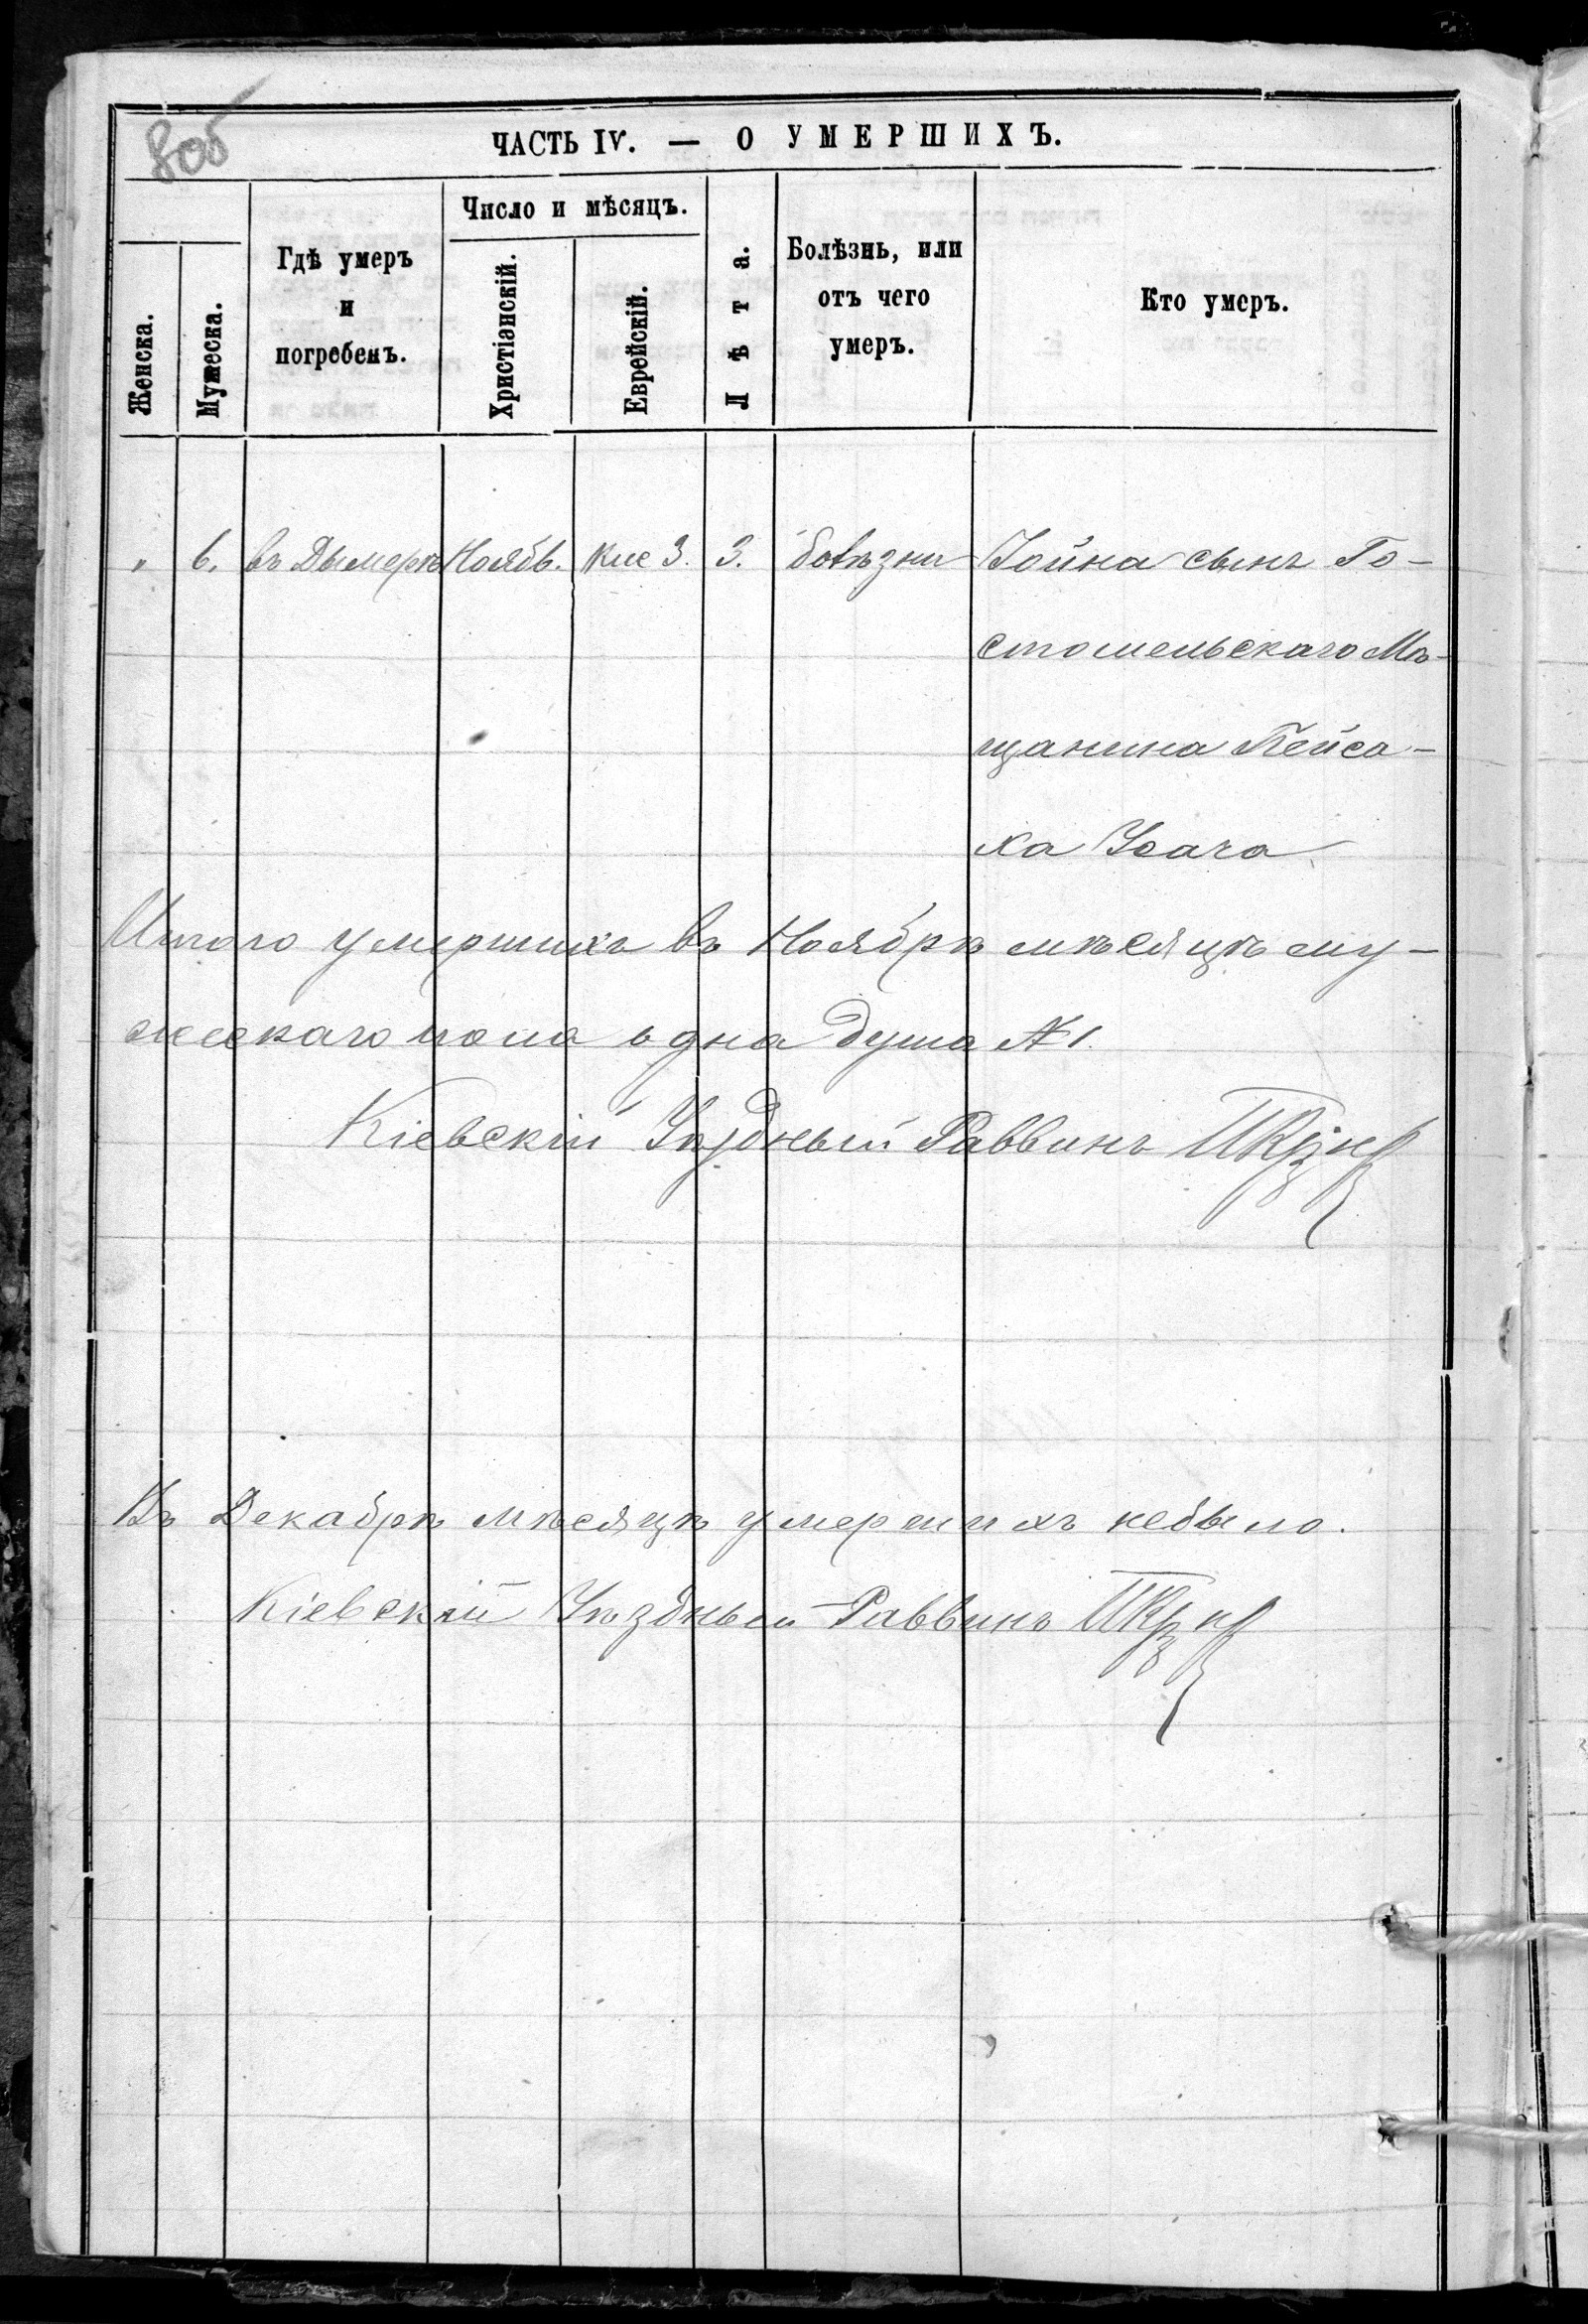 805
ЧАСТЬ IV. — О УМЕРШИХЪ.
Женска.
Мужеска.
Гдѣ умеръ
и
погребенъ.
Число и мѣсяцъ.
Христіанскій.
Еврейскій.
Лѣта.
Болѣзнь, или
отъ чего
умеръ.
Кто умеръ.
" 6. въ Дымеркѣ Ноябь. Кис 3. 3. болѣзни Іойна сынъ Го-
стомельскаго Мѣ-
щанина Пейса-
ха
Итого умершихъ въ Ноябрѣ мѣсяцѣ му-
жескаго пола одна душа № 1.
Кіевскій Уѣздный Раввинъ
Въ Декабрѣ мѣсяцѣ умершихъ небыло.
Кіевскій Уѣздный Раввинъ